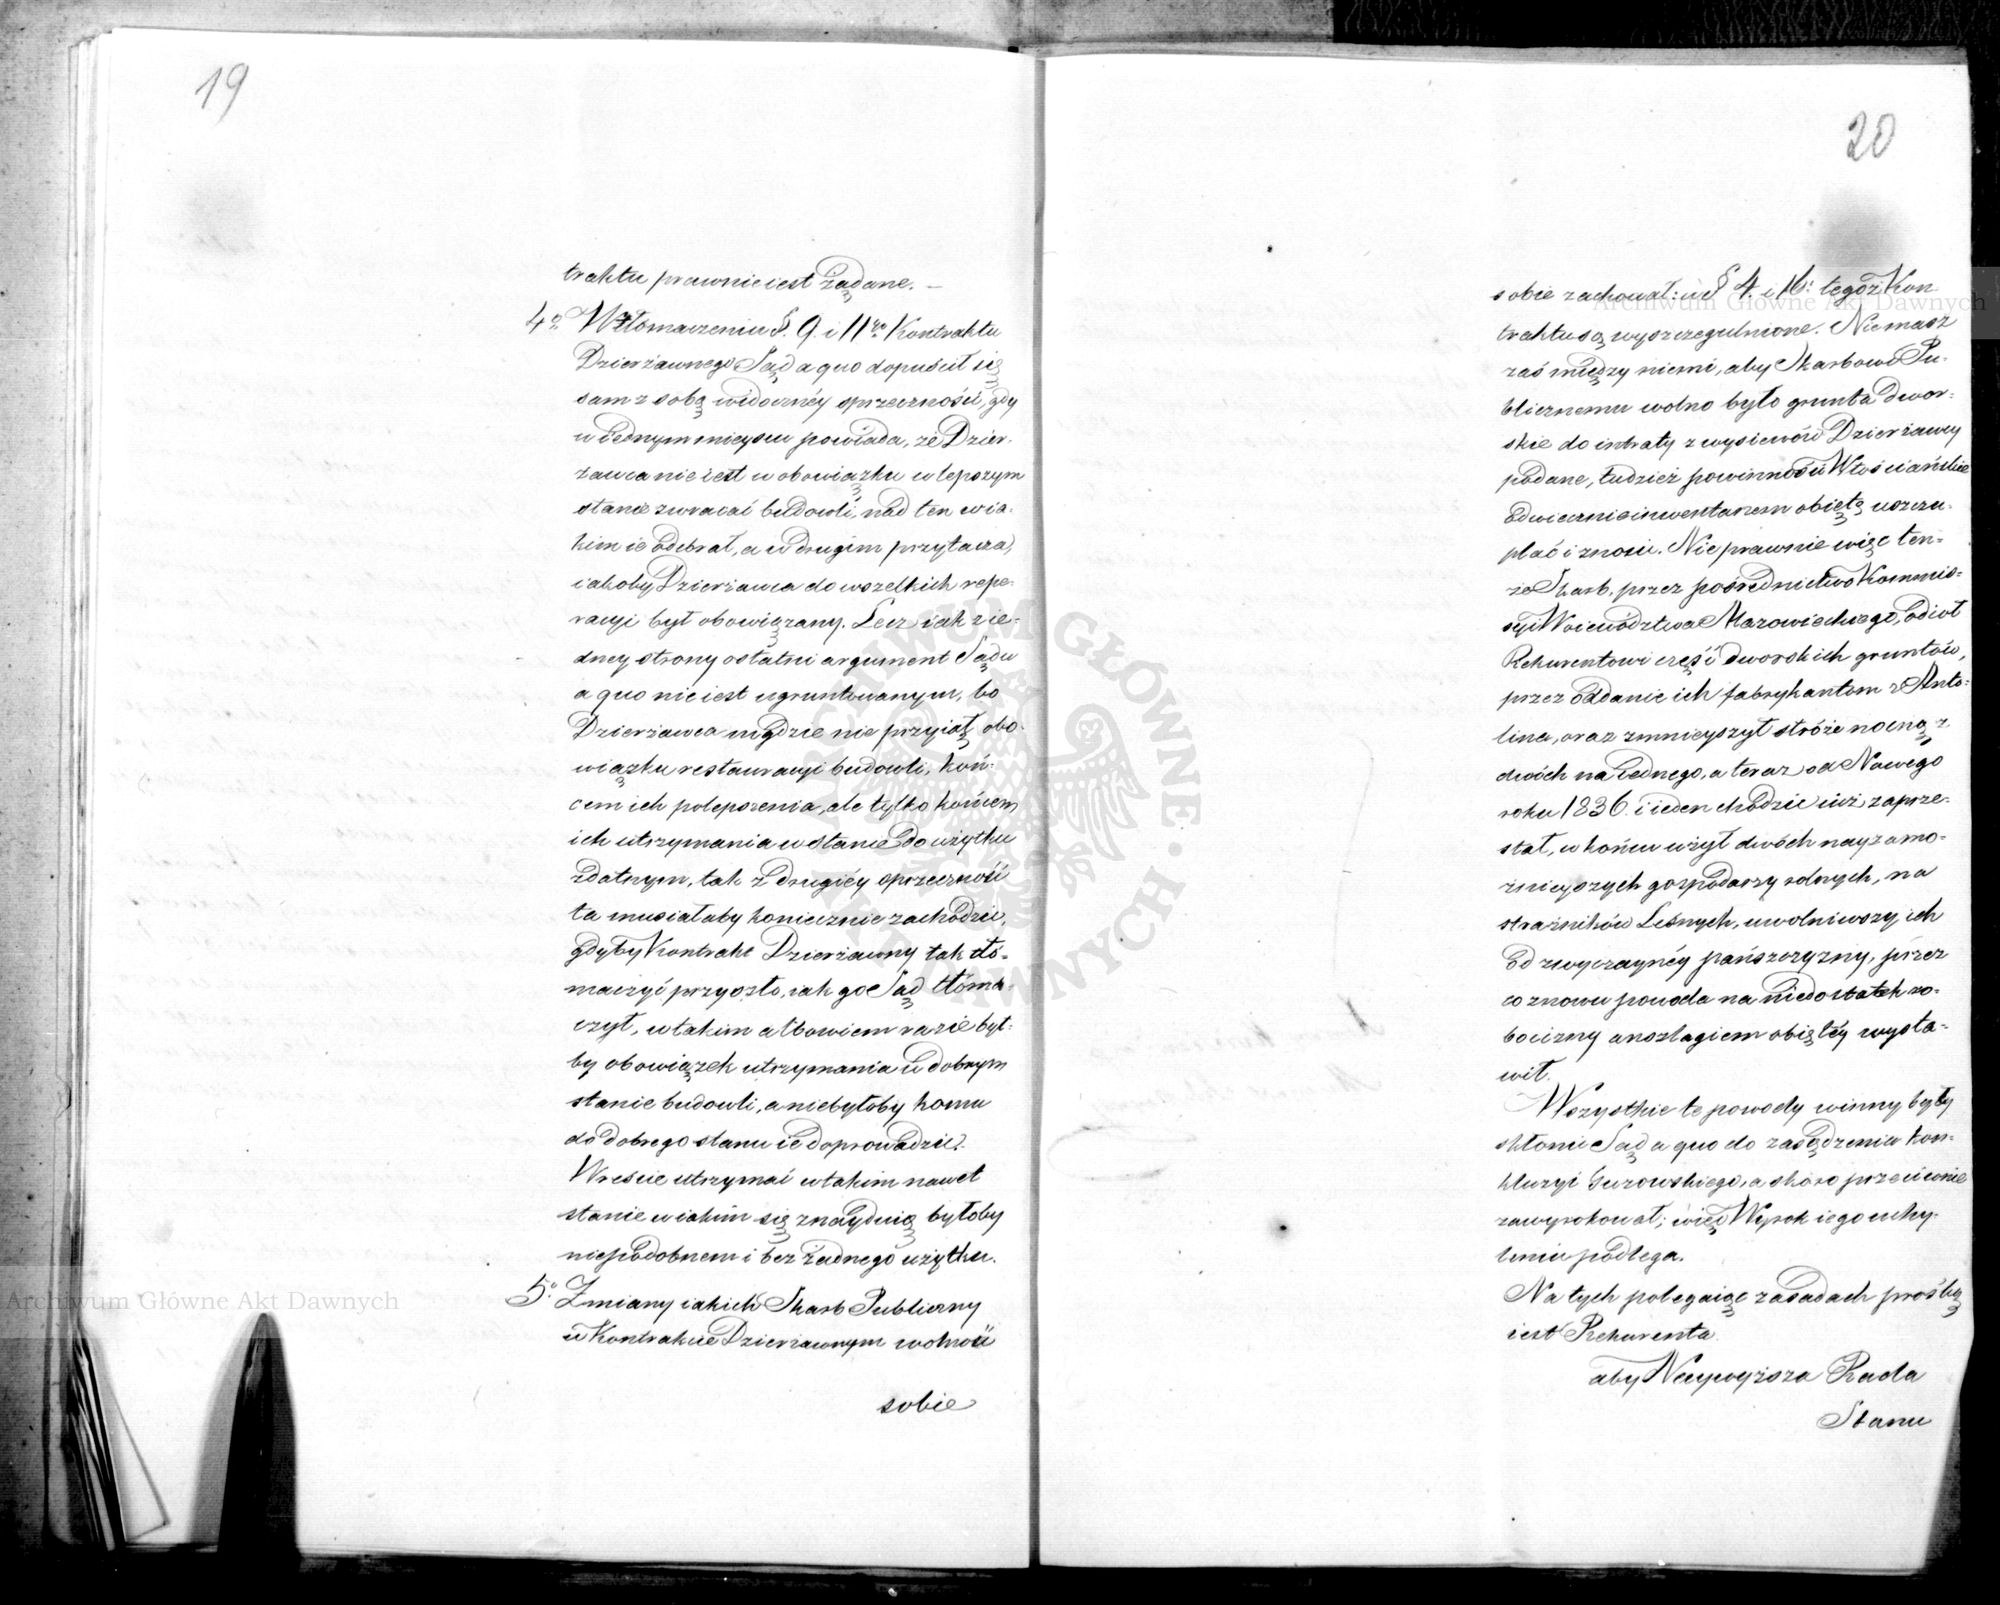 19
traktu prawnie iest żądane. —
4o W tłomaczeniu §. 9. i 11go Kontraktu
Dzierżawnego Sąd a quo dopuścił się
sam z sobą widocznéy sprzeczności, gdy
w iednym mieyscu powiada, że Dzier-
żawca nie iest w obowiązku w lepszym
stanie zwracać budowli, nad ten w ia-
kim ie odebrał, a w drugim przytacza,
iakoby Dzierżawca do wszelkich repe-
racyi był obowiązany. Lecz iak z ie-
dney strony ostatni argument Sądu
a quo nie iest ugruntowanym, bo
Dzierżawca nigdzie nie przyiął obo-
wiązku restauracyi budowli, koń-
cem ich polepszenia, ale tylko końcem
ich utrzymania w stanie do użytku
zdatnym, tak z drugiéy sprzeczność
ta musiałaby koniecznie zachodzić,
gdyby Kontrakt Dzierżawny tak tłó-
maczyć przyszło, iak go Sąd tłóma-
czył, w takim albowiem razie był-
by obowiązek utrzymania w dobrym
stanie budowli, a niebyłoby komu
do dobrego stanu ie doprowadzić.
Wreście utrzymać w takim nawet
stanie w iakim się znayduią byłoby
niepodobnem i bez żadnego użytku.
5o Zmiany iakich Skarb Publiczny
w Kontrakcie Dzierżawnym wolność
sobie
20
sobie zachował: w § 4. i 16: tegoż Kon
traktu są wyszczegulnione. Niemasz
zaś między niemi, aby Skarbowi Pu-
blicznemu wolno było grunta dwor-
skie do intraty z wysiewów Dzierżawcy
podane, tudzież powinności Włościańskie
odwiecznie inwentarzem obięte uszczu-
plać i znosić. Nieprawnie więc ten-
że Skarb, przez pośrednictwo Kommis-
syi Woiewództwa Mazowieckiego, odiął
Rekurentowi część dworskich gruntów,
przez oddanie ich fabrykantom z Anto-
lina, oraz zmnieyszył stróże nocną z
dwóch na iednego, a teraz od Nowego
roku 1836. i ieden chodzić iuż zaprze-
stał, w końcu użył dwóch nayzamo-
żnieyszych gospodarzy rolnych, na
strażników Leśnych, uwolniwszy ich
od zwyczaynéy pańszczyzny, przez
co znowu powoda na niedostatek ro-
bocizny anszlagiem obiętéy wysta-
wił.
Wszystkie te powody winny były
skłonić Sąd a quo do zasądzenia kon-
kluzyi Gurowskiego, a skoro przeciwnie
zawyrokował; więc Wyrok iego uchy-
leniu podlega.
Na tych polegaiąc zasadach prośbą
iest Rekurenta
aby Naywyższa Rada
Stanu
Archiwum Główne Akt Dawnych
Archiwum Główne Akt Dawnych
ARCHIWUM GŁÓWNE · AKT DAWNYCH ·